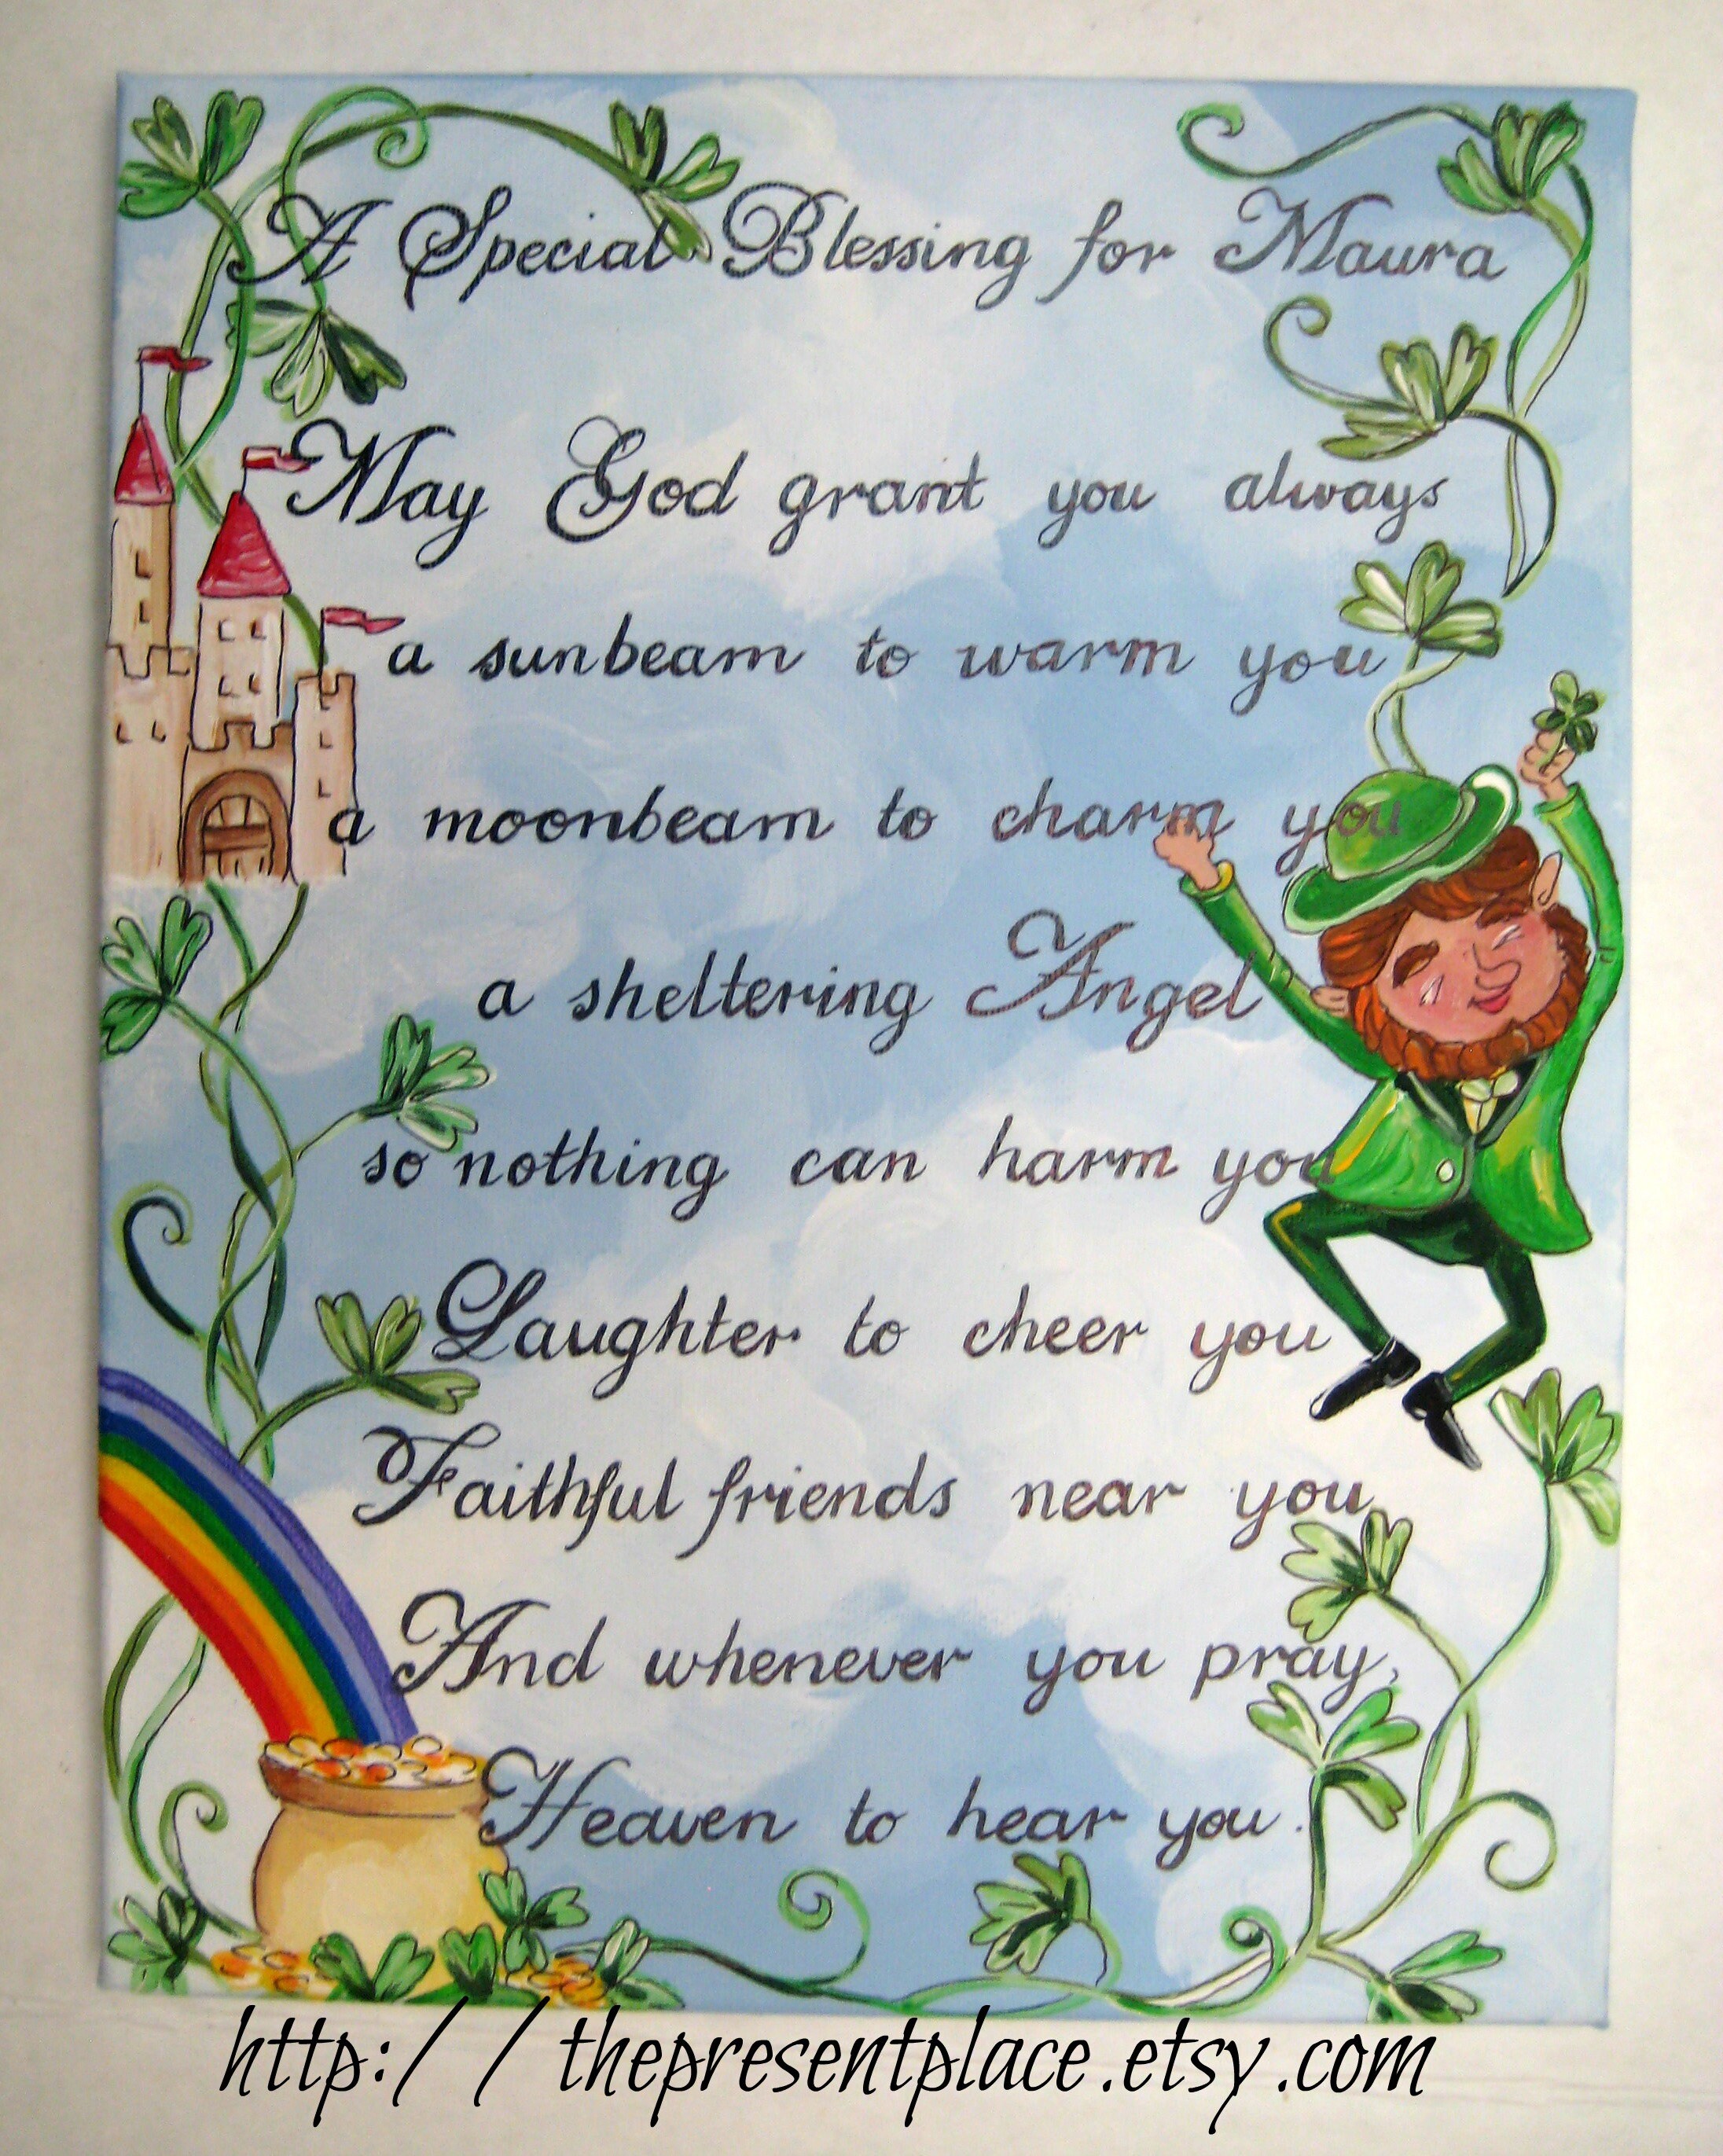 A Special Blessing for Maura
May God grant you always
a sunbeam to warm you
a moonbeam to charm you
a sheltering Angel
so nothing can harm you
Laughter to cheer you
Faithful friends near you
And whenever you pray,
Heaven to hear you.
http://thepresentplace.etsy.com